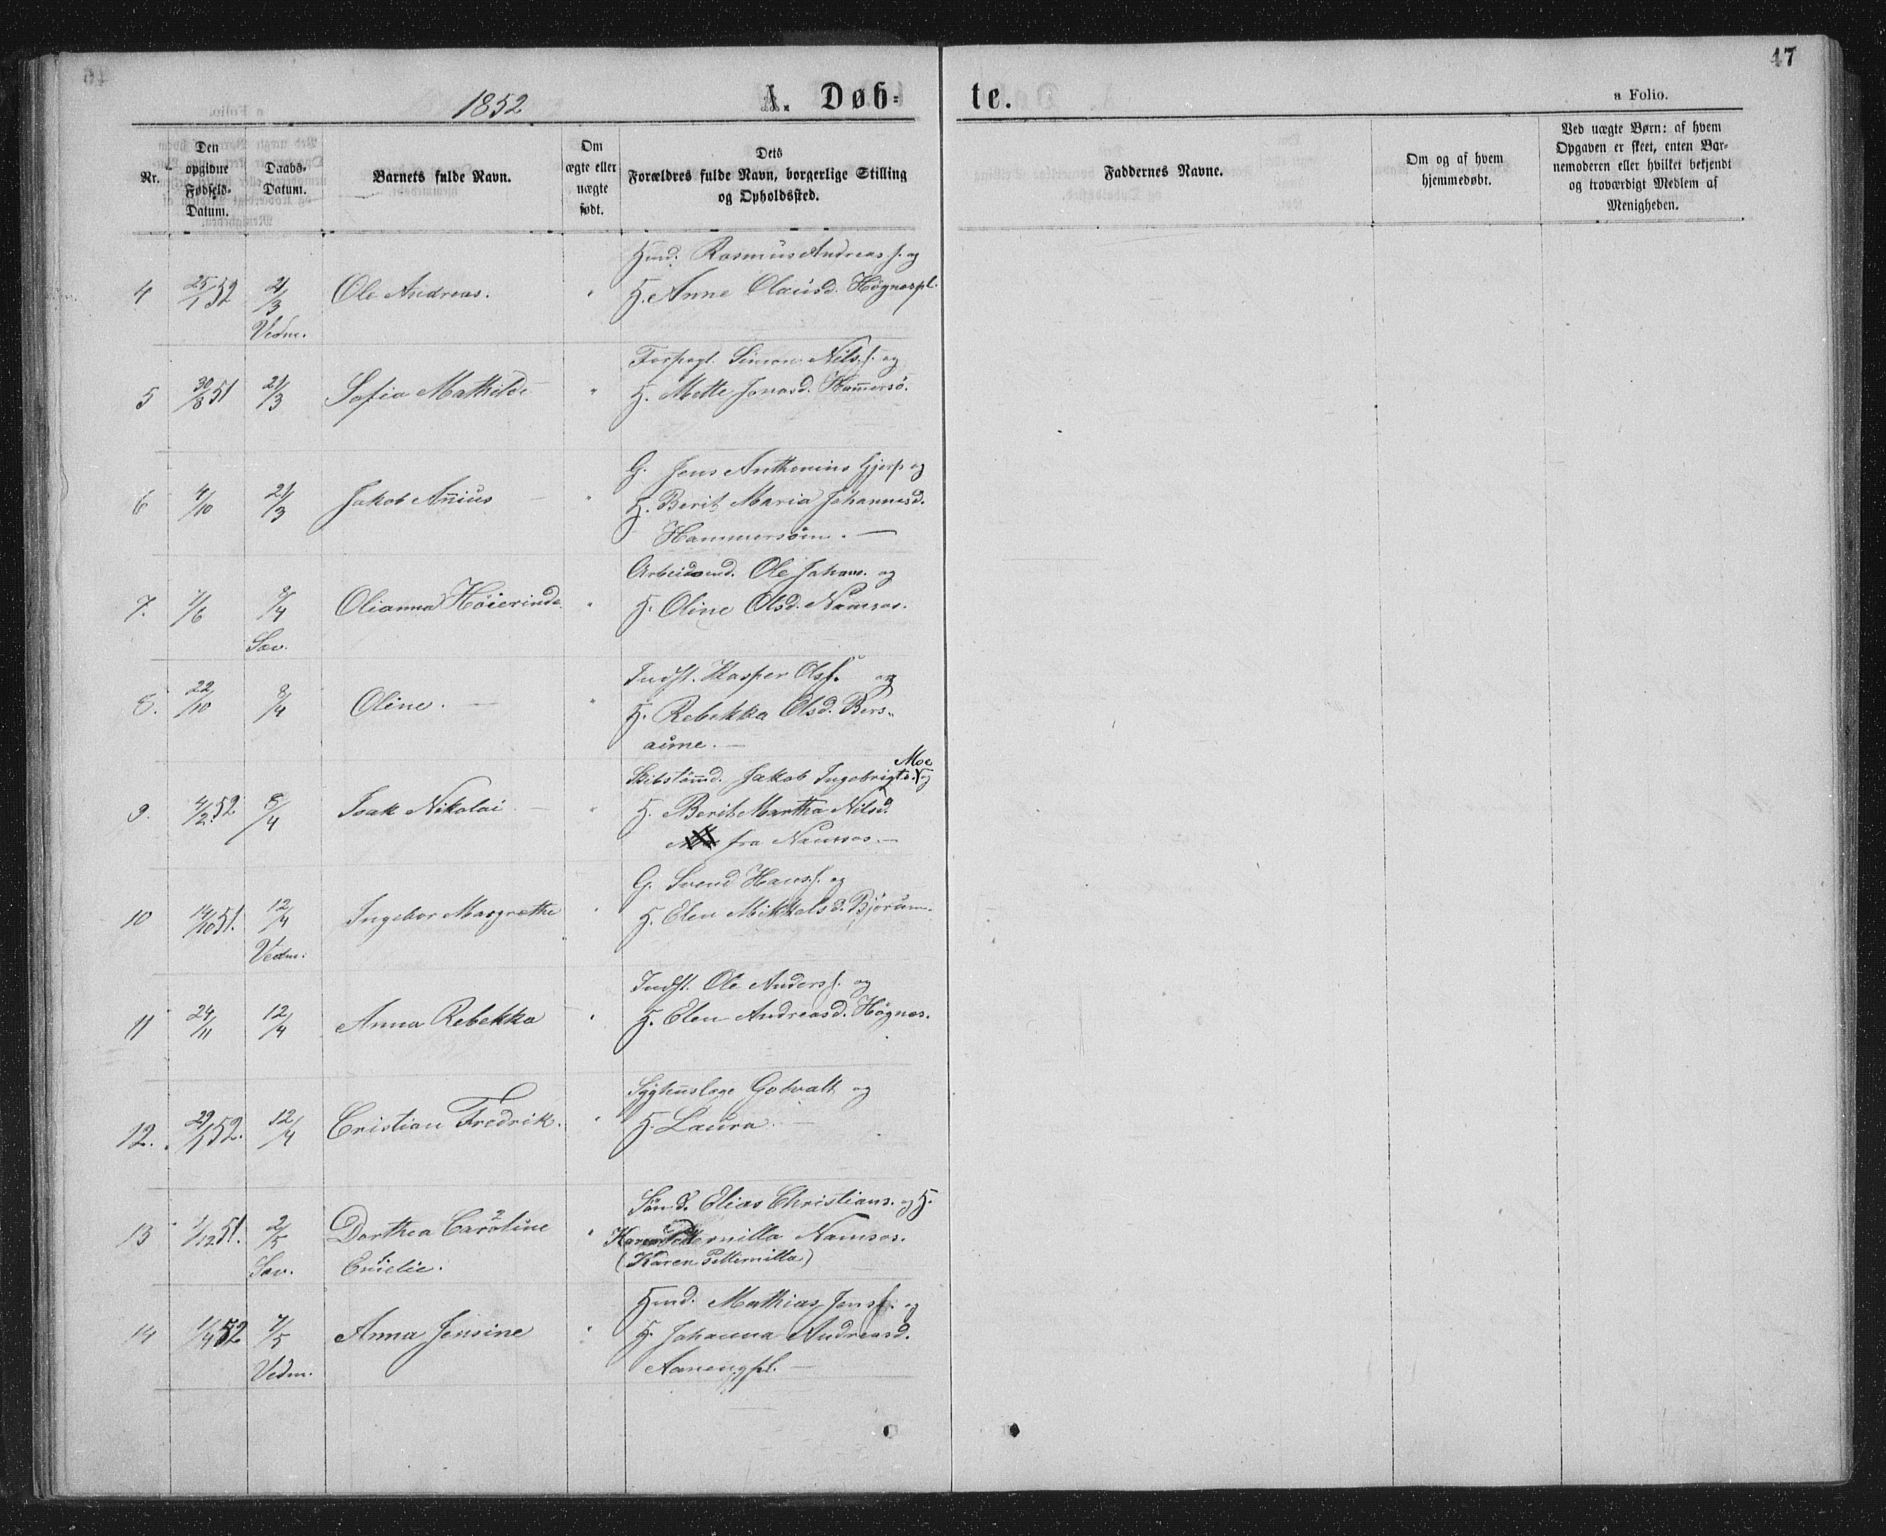 47
1852
A. Døbte.
a Folio.
Nr.
Den opgivne Fødsels-Datum.
Daabs-Datum.
Barnets fulde Navn.
Om ægte eller uægte født.
Dets Forældres fulde Navn, borgerlige Stilling og Opholdssted.
Faddernes Navne.
Om og af hvem hjemmedøbt.
Ved uægte Børn: af hvem Opgaven er skeet, enten Barnemoderen eller hvilket bekjendt og troværdigt Medlem af Menigheden.
4 25/1 52 21/3 Vedm. Ole Andreas. "
Hmd. Rasmus Andreas s. og
H. Anne Olausd. Høgnespl.
5 30/8 51 21/3 Sofia Mathilde "
Forpagt. Simon Nilss. og
H. Mette Jonasd. Ham̅ersø.
6 4/10 21/3 Jakob An̅ius "
G. Jens Anthonius Hjerp og
H. Berit Maria Johannesd.
Hammersøen. —
7. 1/6 8/4 Sæv. Olianna Høierinde "
Arbeidsmd. Ole Johans. og
H. Oline Olsd. Namsos.
8. 22/10 8/4 Oline. "
Indst. Kasper Olss. og
H. Rebekka Olsd. Bers-
aune. —
9. 4/2 52 8/4 Isak Nikolai "
Skibstømmd. Jakob Ingebrigts. Moe og
H. Berit Martha Nilsd.
fra Namsos. —
10 14/10 51. 12/4 Vedm. Ingebor Margrethe "
G. Svend Hanss. og
H. Elen Mikkelsd. Bjørum.
11 24/11 12/4 Anna Rebekka "
Indst. Ole Anderss. og
H. Elen Andreasd. Høgnes.
12. 29/1 52. 12/4 Cristian Fredrik. "
Sygehuslæge Gotvalt og
H. Laura. —
13 1/12 51. 2/5 Sæv. Dorthea Caroline "
Emelie.
Elias Christians. og H.
Karen Petternilla Namsos.
(Karen Petternilla)
14 1/4 52 7/5 Vedm. Anna Jensine "
Hmd. Mathias Jenss. og
H. Johanna Andreasd.
Aanengpl. —